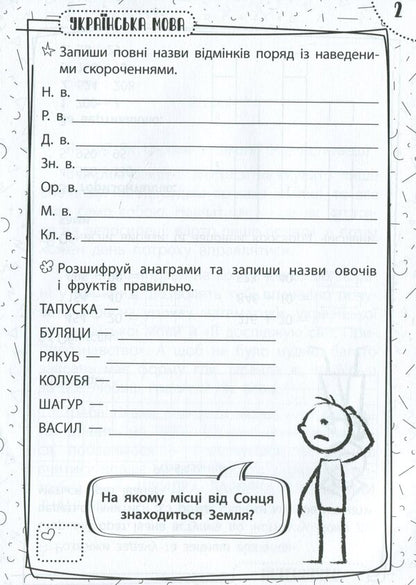 УКРАЇНСЬКА МОВА
2
Запиши повні назви відмінків поряд із наведени-
ми скороченнями.
Н. в.
Р. в.
Д. в.
Зн. в.
Ор. в.
М. в.
Кл. в.
Розшифруй анаграми та запиши назви овочів
і фруктів правильно.
ТАПУСКА —
БУЛЯЦИ —
РЯКУБ —
КОЛУБЯ —
ШАГУР —
ВАСИЛ —
На якому місці від Сонця
знаходиться Земля?